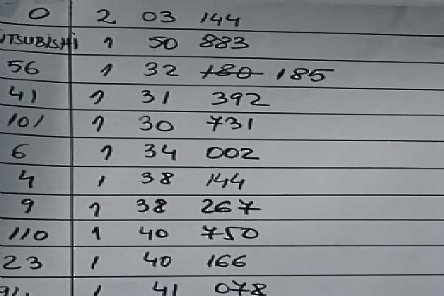 0 2 03 144
ITSUBISHI 1 50 883
56 1 32 180 185
41 1 31 392
101 1 30 731
6 1 34 002
4 1 38 144
9 1 38 267
110 1 40 750
23 1 40 166
1 41 078